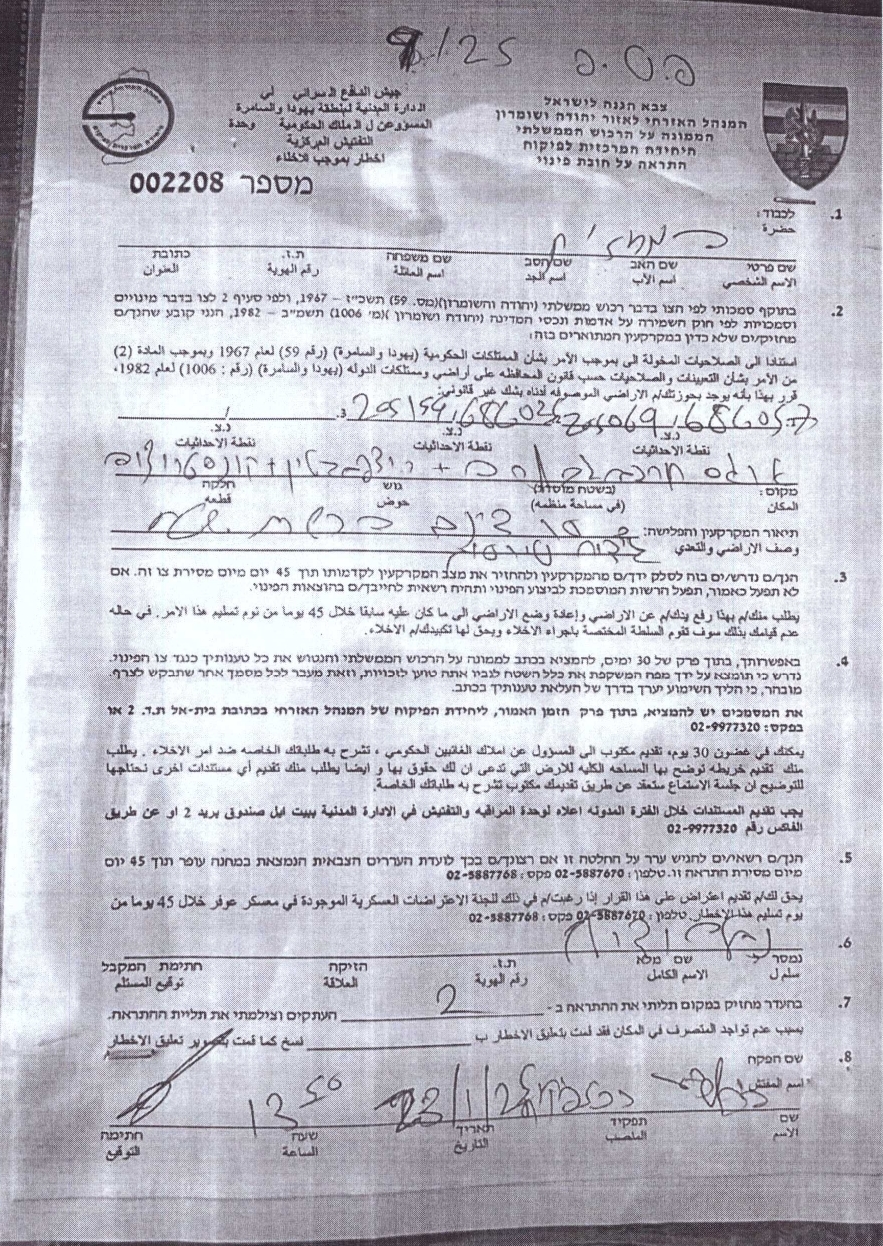 9/25 פ.ס.פ
צבא הגנה לישראל
המנהל האזרחי לאזור יהודה ושומרון
הממונה על הרכוש הממשלתי
היחידה המרכזית לפיקוח
התראה על חובת פינוי
جيش الدفاع الاسرائيلي
الادارة المدنية لمنطقة يهودا والسامرة
المسؤول عن الاملاك الحكومية وحدة
التفتيش المركزية
اخطار بموجب الاخلاء
מספר 002208
1. לכבוד:
حضرة
שם פרטי שם האב שם הסב שם משפחה ת.ז. כתובת
الاسم الشخصي اسم الأب اسم الجد اسم العائلة رقم الهوية العنوان
2. בתוקף סמכותי לפי הצו בדבר רכוש ממשלתי (יהודה והשומרון)(מס. 59) תשכ"ז – 1967, ולפי סעיף 2 לצו בדבר מינויים
וסמכויות לפי חוק השמירה על אדמות ונכסי המדינה (יהודה ושומרון )(מ' 1006) תשמ"ב – 1982, הנני קובע שהנך/ם
מחזיק/ים שלא כדין במקרקעין המתוארים בזה:
استنادا الى الصلاحيات المخولة الى بموجب الأمر بشأن الممتلكات الحكومية (يهودا والسامرة) (رقم 59) لعام 1967 وبموجب المادة (2)
من الأمر بشأن التعيينات والصلاحيات حسب قانون المحافظه على أراضي وممتلكات الدوله (يهودا والسامرة) (رقم : 1006) لعام 1982،
قرر بهذا بأنه يوجد بحوزتك/م الاراضي الموصوفه أدناه بشك غير قانوني:
3.
נ.צ. נ.צ. נ.צ.
نقطة الاحداثيات نقطة الاحداثيات نقطة الاحداثيات
מקום: (בשטח מוסדר) גוש חלקה
المكان (في مساحة منظمه) حوض قطعه
תיאור המקרקעין והפלישה:
وصف الاراضي والتعدي
3. הנך/ם נדרש/ים בזה לסלק ידך/ם מהמקרקעין ולהחזיר את מצב המקרקעין לקדמותו תוך 45 יום מיום מסירת צו זה. אם
לא תפעל כאמור, תפעל הרשות המוסמכת לביצוע הפינוי ותהיה רשאית לחייבך/ם בהוצאות הפינוי.
يطلب منك/م بهذا رفع يدك/م عن الاراضي وإعادة وضع الاراضي الى ما كان عليه سابقا خلال 45 يوما من يوم تسليم هذا الامر. في حاله
عدم قيامك بذلك سوف تقوم السلطة المختصة باجراء الاخلاء ويحق لها تكبيدك/م الاخلاء.
4. באפשרותך, בתוך פרק של 30 ימים, להמציא בכתב לממונה על הרכוש הממשלתי והנטוש את כל טענותיך כנגד צו הפינוי.
נדרש כי תומצא על ידך מפה המשקפת את כלל השטח לגביו אתה טוען לזכויות, וזאת מעבר לכל מסמך אחר שתבקש לצרף.
מובהר, כי הליך השימוע יערך בדרך של העלאת טענותיך בכתב.
את המסמכים יש להמציא, בתוך פרק הזמן האמור, ליחידת הפיקוח של המנהל האזרחי בכתובת בית-אל ת.ד. 2 או
בפקס: 02-9977320
يمكنك في غضون 30 يوم، تقديم مكتوب الى المسؤول عن املاك الغائبين الحكومي ، تشرح به طلباتك الخاصه ضد امر الاخلاء . يطلب
منك تقديم خريطه توضح بها المساحه الكليه للارض التي تدعى ان لك حقوق بها و ايضا يطلب منك تقديم أي مستندات اخرى تحتاجها
للتوضيح ان جلسة الاستماع ستعقد عن طريق تقديمك مكتوب تشرح به طلباتك الخاصة.
يجب تقديم المستندات خلال الفترة المدونه اعلاه لوحدة المراقبه والتفتيش في الادارة المدنية ببيت ايل صندوق بريد 2 او عن طريق
الفاكس رقم 02-9977320
5. הנך/ם רשאי/ים להגיש ערר על החלטה זו אם רצונך/ם בכך לועדת העררים הצבאית הנמצאת במחנה עופר תוך 45 יום
מיום מסירת התראה זו.טלפון: 02-5887670 פקס: 02-5887768
يحق لك/م تقديم اعتراض على هذا القرار إذا رغبت/م في ذلك للجنة الاعتراضات العسكرية الموجودة في معسكر عوفر خلال 45 يوما من
يوم تسليم هذا الاخطار. טלפון: 02-5887670 פקס: 02-5887768
6.
נמסר ל שם מלא ת.ז. הזיקה חתימת המקבל
سلم ل الاسم الكامل رقم الهوية العلاقة توقيع المستلم
7. בהעדר מחזיק במקום תליתי את ההתראה ב - 2 העתקים וצילמתי את תליית ההתראה.
بسبب عدم تواجد المتصرف في المكان فقد قمت بتعليق الاخطار ب نسخ كما قمت بتصوير تعليق الاخطار
8. שם הפקח
اسم المفتش
23/1/25 13 50
שם תפקיד תאריך שעה חתימה
الاسم المنصب التاريخ الساعة التوقيع